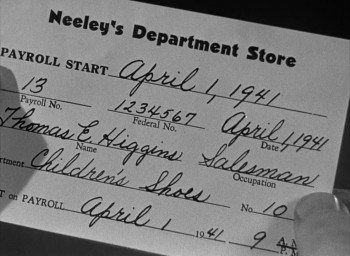 Neeley's Department Store
PAYROLL START April 1, 1941
13 1234567 April 1, 1941
Payroll No. Federal No. Date
Thomas E. Higgins Salesman
Name Occupation
rtment Children's Shoes No. 10
T ON PAYROLL April 1 1941 9 A.